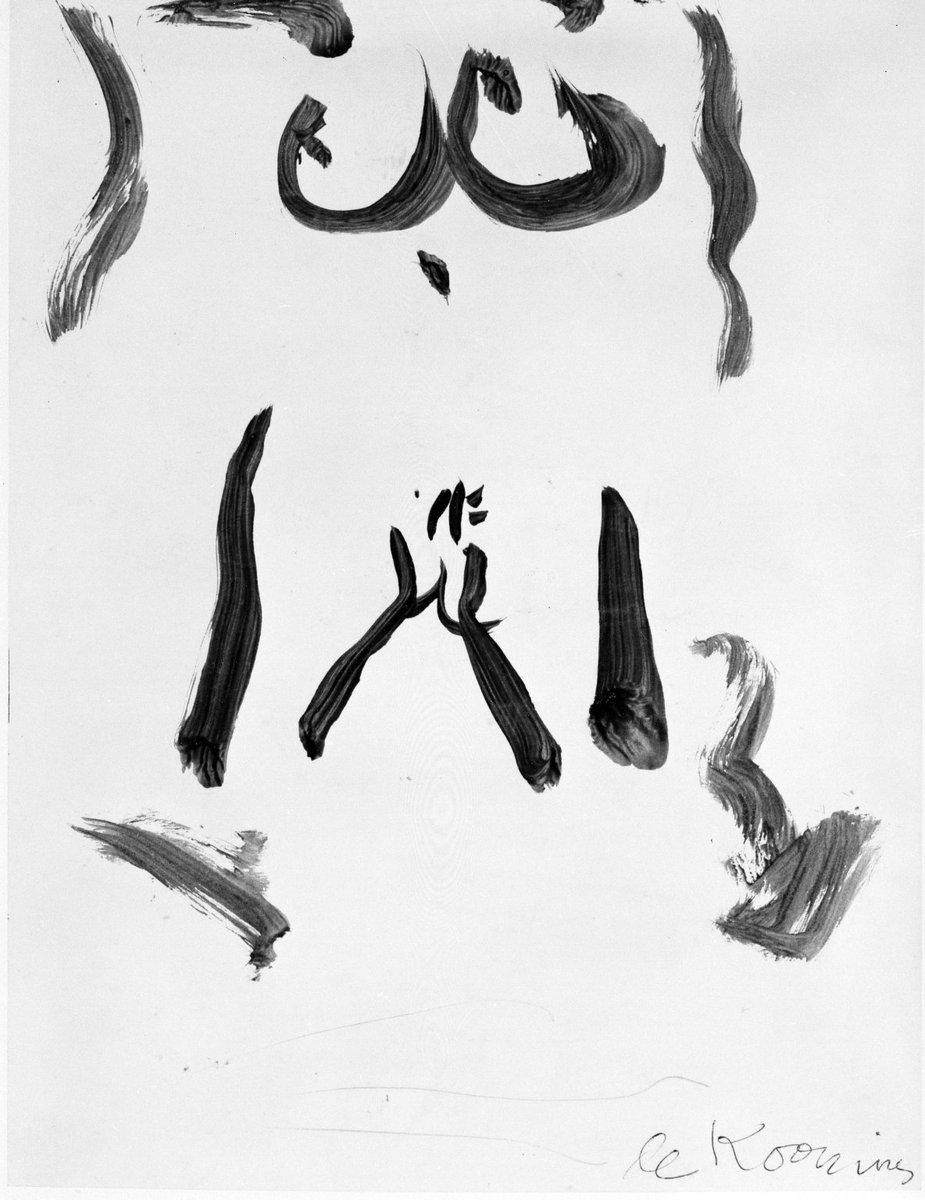 de Kooning